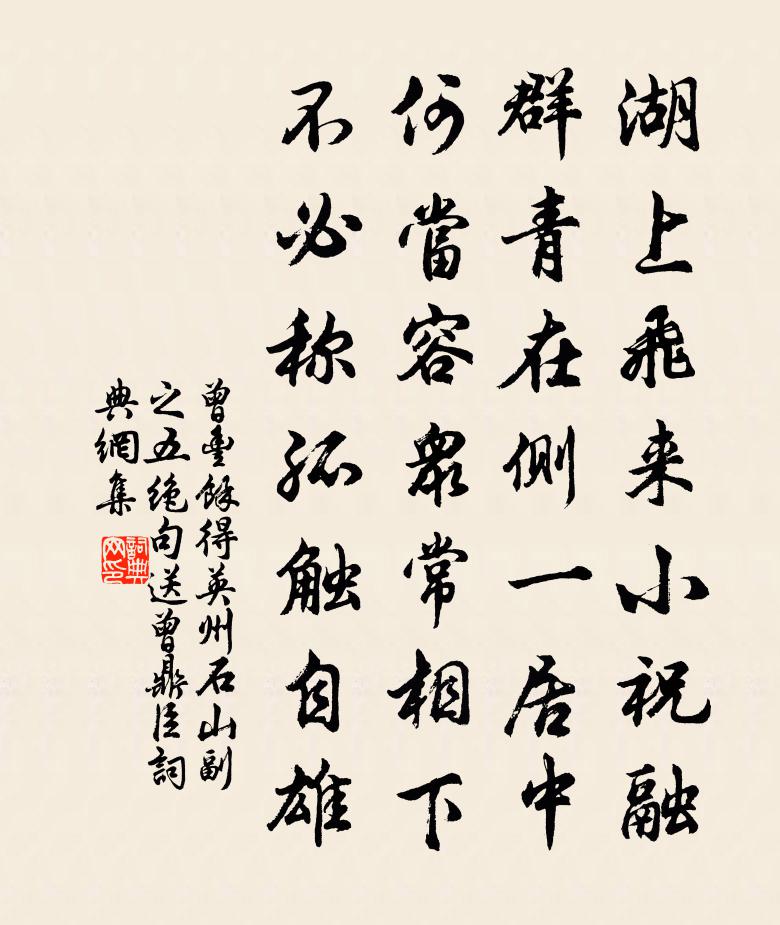 湖上飛来小祝融
群青在側一居中
何當容衆常相下
不必称孤触自雄
曾豊餘得英州石山副
之五绝句送曾鼎臣詞
典網集
詞典网印